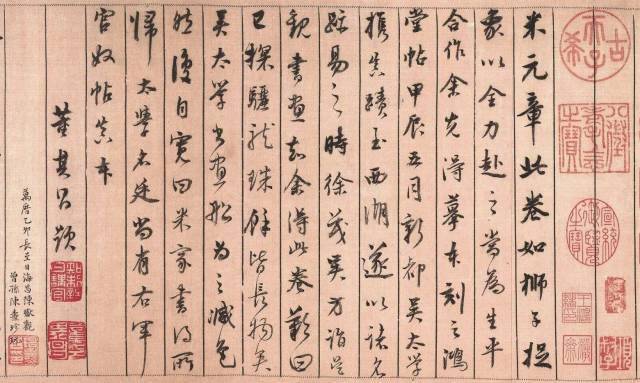 古希天子
八徵耄念之寶
宣統御覽之寶
米元章此卷如獅子捉
象以全力赴之當為生平
合作余先得摹本刻之鴻
堂帖甲辰五月新都吳太學
攜真蹟至西湖遂以諸名
跡易之時徐茂吳方詣吳
觀書畫知余得此卷歎曰
已探驪龍珠餘皆長物矣
吳太學書畫船為之減色
然復自寬曰米家書得所
歸太學名廷尚有右軍
官奴帖真本
董其昌題
知制誥日講官
董其昌
萬曆乙卯長至日海昌陳瓛觀
曾孫陳